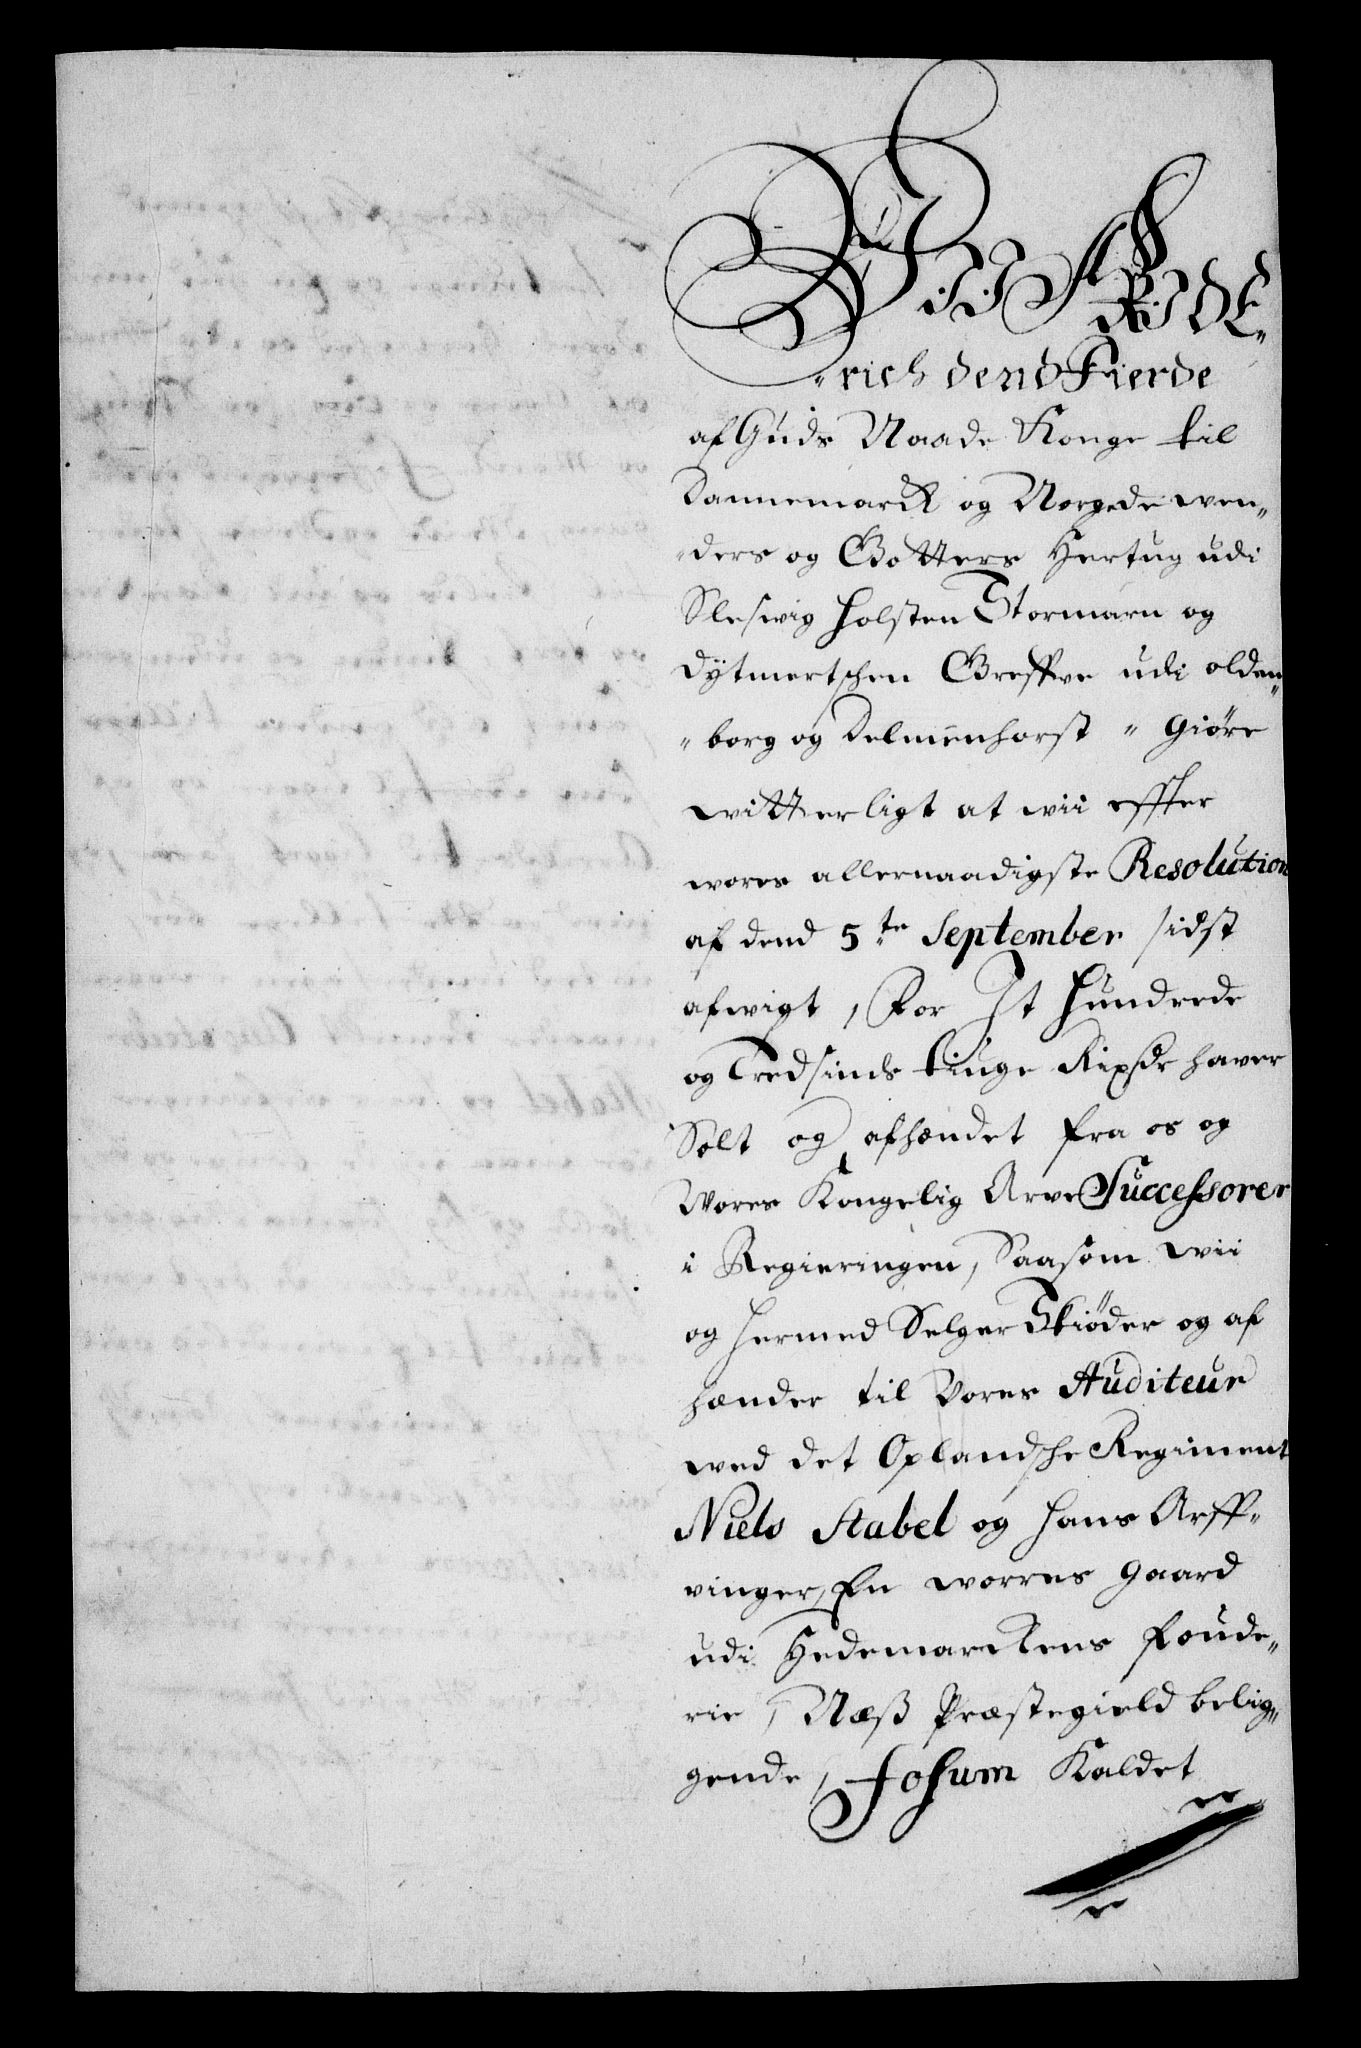 Wii Fride„
„rich dend Fierde
af Guds Naade Konge til
Dannemarck og Norge de wen„
„ders og Gotters Hertug udi
Sleswig Holsten Stormarn og
Dytmertschen Greffve udi olden„
„borg og Delmenhorst „ Giøre
witterligt at wii effter
wores allernaadigste Resolution
af dend 5te September sidst
afwigt, For It Hundrede
og Tredsinds tiuge Rixdr haver
Solt og afhændet fra os og
Wores Kongelig Arve Successorer
i Regieringen, Saasom wii
og hermed Selger Skiøder og af
hænder til Vores Auditeur
wed det Oplandsche Regiment
Niels Stabel og Hans Arff„
vinger, En worres Gaard
udi Hedemarckens Foude„
rie, Næss Præstegield belig„
gende, Josum Kaldet